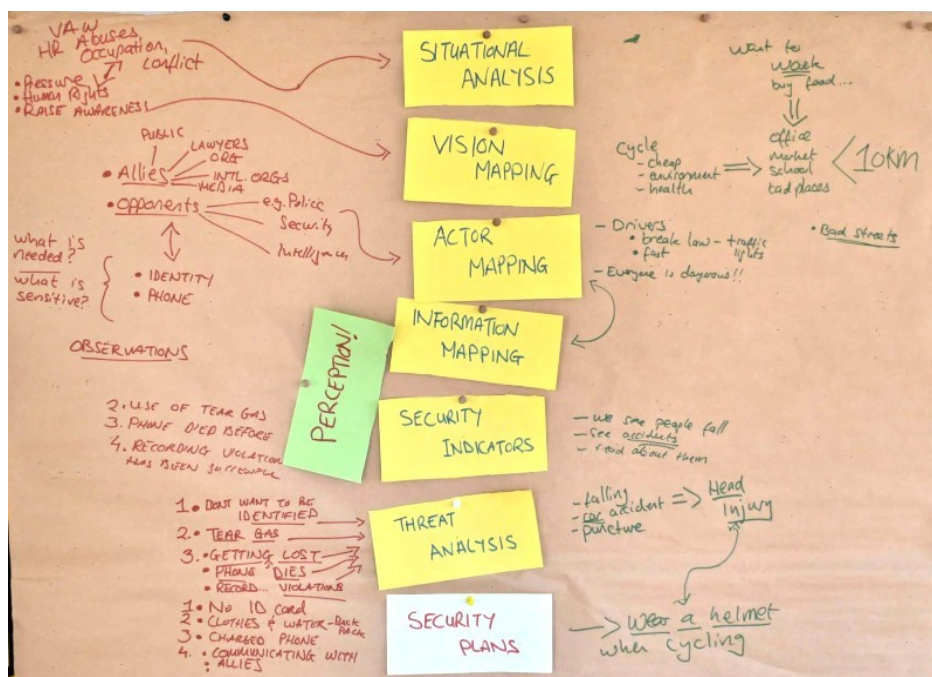 VAW
HR Abuses,
Occupation,
Conflict
• Pressure
• Human Rights
• RAISE AWARENESS
PUBLIC
LAWYERS
ORG
INTL. ORGS
MEDIA
• Allies
• Opponents
e.g. Police
Security
Intelligence
what is
needed?
what is
sensitive?
• IDENTITY
• PHONE
OBSERVATIONS
2. USE OF TEAR GAS
3. PHONE DIED BEFORE
4. RECORDING VIOLATION
HAS BEEN
1. DONT WANT TO BE
IDENTIFIED
2. TEAR GAS
3. • GETTING LOST
• PHONE DIES
• RECORD... VIOLATIONS
1. No ID card
2. CLOTHES & WATER - BACK
PACK
3. CHARGED PHONE
4. COMMUNICATING WITH
ALLIES
SITUATIONAL
ANALYSIS
VISION
MAPPING
ACTOR
MAPPING
INFORMATION
MAPPING
PERCEPTION!
SECURITY
INDICATORS
THREAT
ANALYSIS
SECURITY
PLANS
Want to
work
buy food...
office
market
school
bad places
< 10KM
Cycle
- cheap
- environment
- health
- Drivers
• break law - traffic
lights
• fast
- Everyone is dangerous!!
• Bad streets
- we see people fall
- see accidents
- read about them
- falling
- car accident
- puncture
Head
injury
Wear a helmet
when cycling